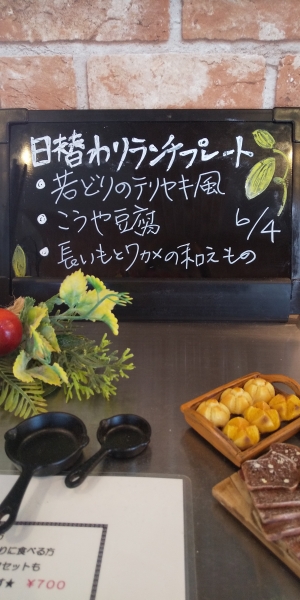 日替わりランチプレート
• 若どりのテリヤキ風
• こうや豆腐
• 長いもとワカメの和えもの
6/4
りに食べる方
セットも
す★ ¥700